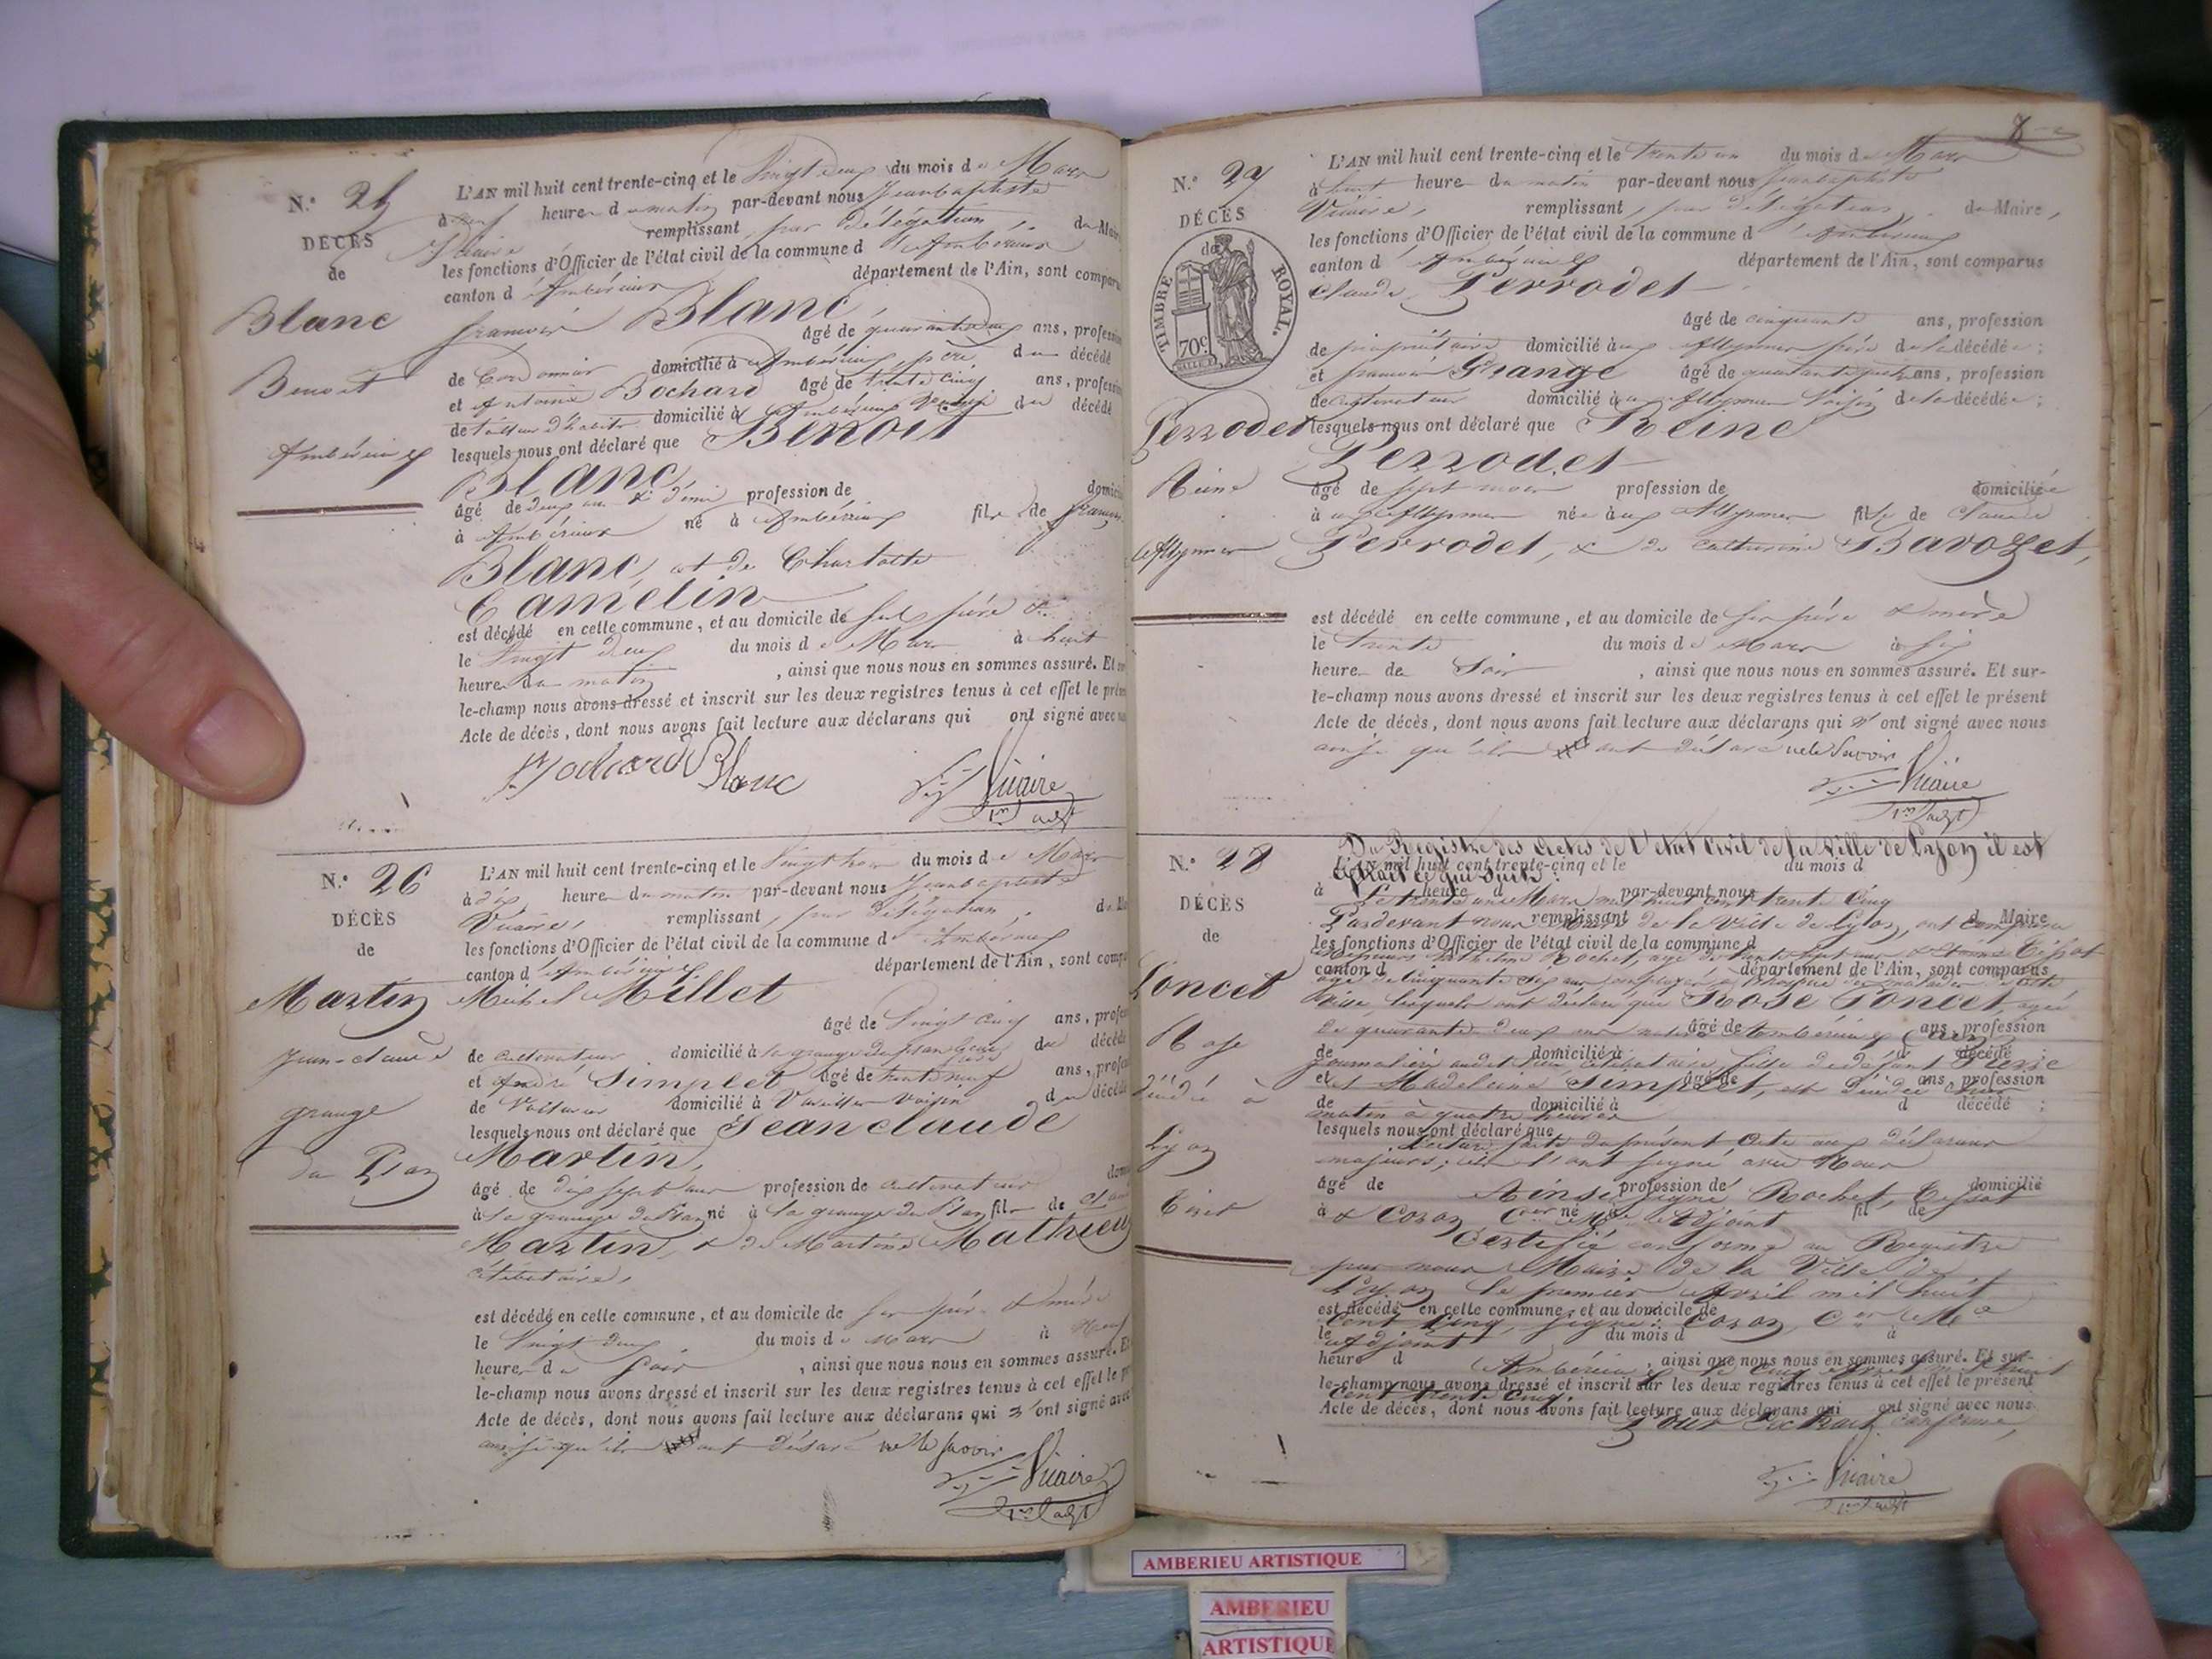 N.o 25
DÉCÈS
de
Blanc
Benoit
Ambérieux
L'AN mil huit cent trente-cinq et le Vingt deux du mois de Mars
à neuf heure du matin par-devant nous Jeanbaptiste
Vicaire remplissant, par délégation, du Maire
les fonctions d'Officier de l'état civil de la commune d'Ambérieux
canton d'Ambérieux département de l'Ain, sont comparus
françois Blanc
âgé de quarante deux ans, profession
de Cordonnier domicilié à Ambérieux, père du décédé
et Antoine Bochard âgé de trente cinq ans, profession
de tailleur d'habits domicilié à Ambérieux du décédé
lesquels nous ont déclaré que Benoit
Blanc
âgé de deux ans & demi profession de domicilié
à Ambérieux né à Ambérieux fils de françois
Blanc, et de Charlotte
Camelin
est décédé en cette commune, et au domicile de ses père &
le Vingt deux du mois de Mars à huit
heure du matin, ainsi que nous nous en sommes assuré. Et sur
le-champ nous avons dressé et inscrit sur les deux registres tenus à cet effet le présent
Acte de décès, dont nous avons fait lecture aux déclarans qui ont signé avec nous
Bochard Blanc Vicaire
1er adjt
N.o 26
DÉCÈS
de
Martin
Jean-claude
grange
du Plan
L'AN mil huit cent trente-cinq et le Vingt trois du mois de Mars
à dix heure du matin par-devant nous Jeanbaptiste
Vicaire, remplissant, par délégation, du
les fonctions d'Officier de l'état civil de la commune d'Ambérieux
canton d'Ambérieux département de l'Ain, sont comparus
Michel Millet
âgé de Vingt cinq ans, profession
de cultivateur domicilié à la grange du plan du décédé
et André Simplet âgé de trente neuf ans, profession
de Voiturier domicilié à Vareilles Voisin du décédé
lesquels nous ont déclaré que Jean claude
Martin,
âgé de dix sept ans profession de cultivateur
à la grange du Plan né à la grange du Plan fils de Claude
Martin, & de Martine Mathieu
célibataire,
est décédé en cette commune, et au domicile de ses père & mère
le Vingt deux du mois de Mars à Neuf
heure du Soir, ainsi que nous nous en sommes assuré. Et
le-champ nous avons dressé et inscrit sur les deux registres tenus à cet effet le
Acte de décès, dont nous avons fait lecture aux déclarans qui n'ont signé avec
ainsi qu'ils ont déclaré ne le savoir
Vicaire
1er adjt
8
N.o 27
DÉCÈS
de
TIMBRE ROYAL.
70c
Perrodet
Reine
Allymes
L'AN mil huit cent trente-cinq et le trente un du mois de Mars
à huit heure du matin par-devant nous Jeanbaptiste
Vicaire, remplissant, par délégation, du Maire,
les fonctions d'Officier de l'état civil de la commune d'Ambérieux
canton d'Ambérieux département de l'Ain, sont comparus
Claude Perrodet
âgé de cinquante ans, profession
de propriétaire domicilié aux Allymes père de la décédée;
et françois Grange âgé de quarante ans, profession
de cultivateur domicilié aux Allymes Voisin de la décédée;
lesquels nous ont déclaré que Reine
Perrodet
âgé de sept mois profession de domiciliée
à aux Allymes née aux Allymes fille de Claude
Perrodet, & de catherine Bavozet,
est décédé en cette commune, et au domicile de ses père & mère
le trente du mois de Mars à six
heure du Soir, ainsi que nous nous en sommes assuré. Et sur-
le-champ nous avons dressé et inscrit sur les deux registres tenus à cet effet le présent
Acte de décès, dont nous avons fait lecture aux déclarans qui n'ont signé avec nous
ainsi qu'ils ont déclaré ne le savoir
Vicaire
1er adjt
N.o 28
DÉCÈS
de
Poncet
Rose
décédée à
Lyon
Du Registre des Actes de l'état Civil de la Ville de Lyon il est
L'AN mil huit cent trente-cinq et le du mois d
extrait ce qui suit:
à heure d par-devant nous
Le trente un Mars mil huit cent trente cinq
remplissant d Maire
Pardevant nous Maire de la Ville de Lyon, ont comparu
les fonctions d'Officier de l'état civil de la commune d
Rochet, âgé de trente sept ans
canton d département de l'Ain, sont comparus
âgé de Cinquante six ans employés à l'hospice
lesquels ont déclaré que Rose Poncet, âgée
de quarante deux ans native d'Ambérieux (Ain)
âgé de ans, profession
de domicilié à d décédé
journalière célibataire fille de défunt Pierre
et âgé de ans, profession
et Madeleine Simplet, est décédée
de domicilié à d décédé;
matin à quatre heures
lesquels nous ont déclaré que
Lecture faite du présent acte aux déclarans
majeurs, ils l'ont signé avec Nous
âgé de profession de domicilié
Ainsi signé Rochet,
à né à fil de
& Coron Adjoint
Certifié conforme au Registre
par nous Maire de la Ville de
Lyon le premier Avril mil huit
est décédé en cette commune, et au domicile de
Cent cinq, signé: Coron,
le du mois d à
Adjoint
heure d, ainsi que nous nous en sommes assuré. Et sur-
Ambérieux le Cinq Avril mil huit
le-champ nous avons dressé et inscrit sur les deux registres tenus à cet effet le présent
Cent trente Cinq.
Acte de décès, dont nous avons fait lecture aux déclarans qui ont signé avec nous
Pour Extrait conforme,
Vicaire
1er adjt
AMBERIEU ARTISTIQUE
AMBERIEU
ARTISTIQUE